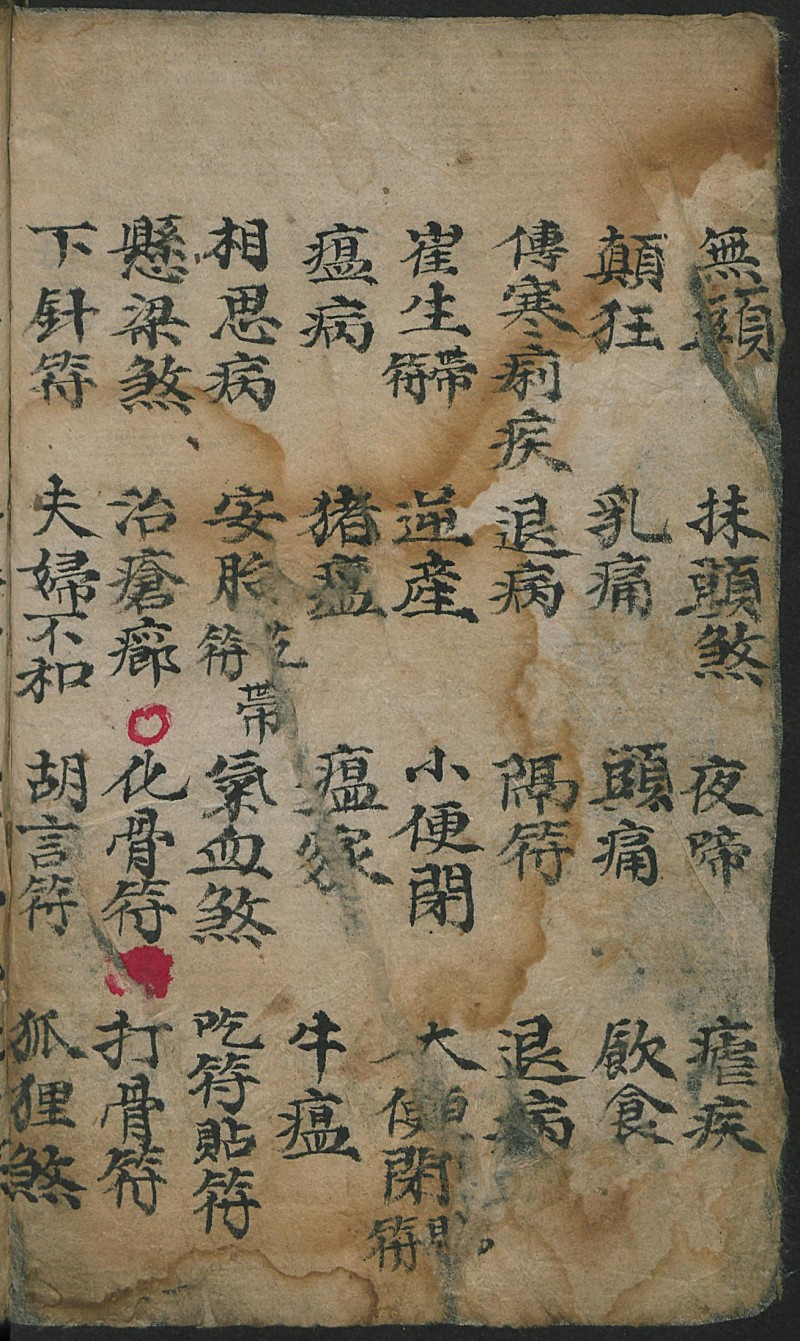 無頭 抹頭煞 夜啼 瘧疾
顛狂 乳痛 頭痛 飲食
傳寒痢疾 退病 隔符 退病
崔生帶符 逆產 小便閉 大便閉符
瘟病 猪瘟 瘟家 牛瘟
相思病 安胎吃符帶 氣血煞 吃符貼符
懸梁煞 治瘡癤 化骨符 打骨符
下針符 夫婦不和 胡言符 狐狸煞